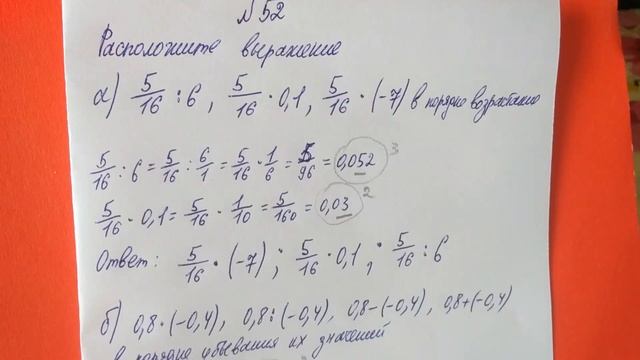 № 52
Расположите выражение
а) 5/16 : 6, 5/16 · 0,1, 5/16 · (-7) в порядке возрастания
5/16 : 6 = 5/16 : 6/1 = 5/16 · 1/6 = 5/96 = 0,052 3
5/16 · 0,1 = 5/16 · 1/10 = 5/160 = 0,03 2
Ответ: 5/16 · (-7); 5/16 · 0,1; 5/16 : 6
б) 0,8 · (-0,4), 0,8 : (-0,4), 0,8 - (-0,4), 0,8 + (-0,4)
в порядке убывания их значений